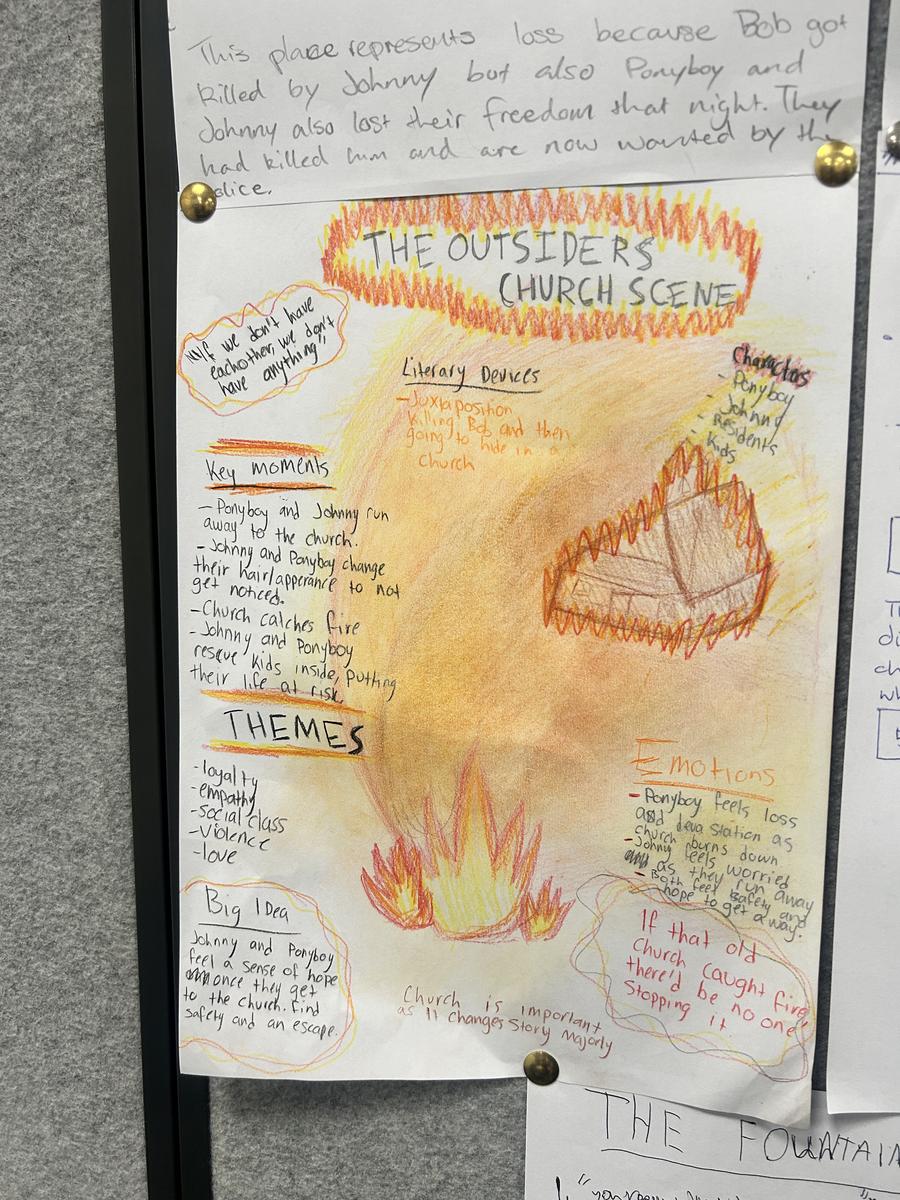 This place represents loss because Bob got
killed by Johnny but also Ponyboy and
Johnny also lost their freedom that night. They
had killed him and are now wanted by the
olice.
THE OUTSIDERS
CHURCH SCENE
"If we don't have
eachother, we don't
have anything"
Literary Devices
- Juxtaposition
killing Bob and then
going to hide in a
church
Charactors
- Ponyboy
- Johnny
- Residents
- Kids
Key moments
- Ponyboy and Johnny run
away to the church.
- Johnny and Ponyboy change
their hair/apperance to not
get noticed.
- Church catches fire
- Johnny and Ponyboy
rescue kids inside, putting
their life at risk.
THEMES
- loyalty
- empathy
- social class
- Violence
- love
Emotions
- Ponyboy feels loss
and devastation as
church burns down
- Johnny feels worried
as they run away
- Both feel safety and
hope to get away.
Big IDea
Johnny and Ponyboy
feel a sense of hope
once they get
to the church. Find
safety and an escape.
If that old
Church caught fire,
there'd be no one
Stopping it
Church is important
as it changes story majorly
THE FOUNTAIN